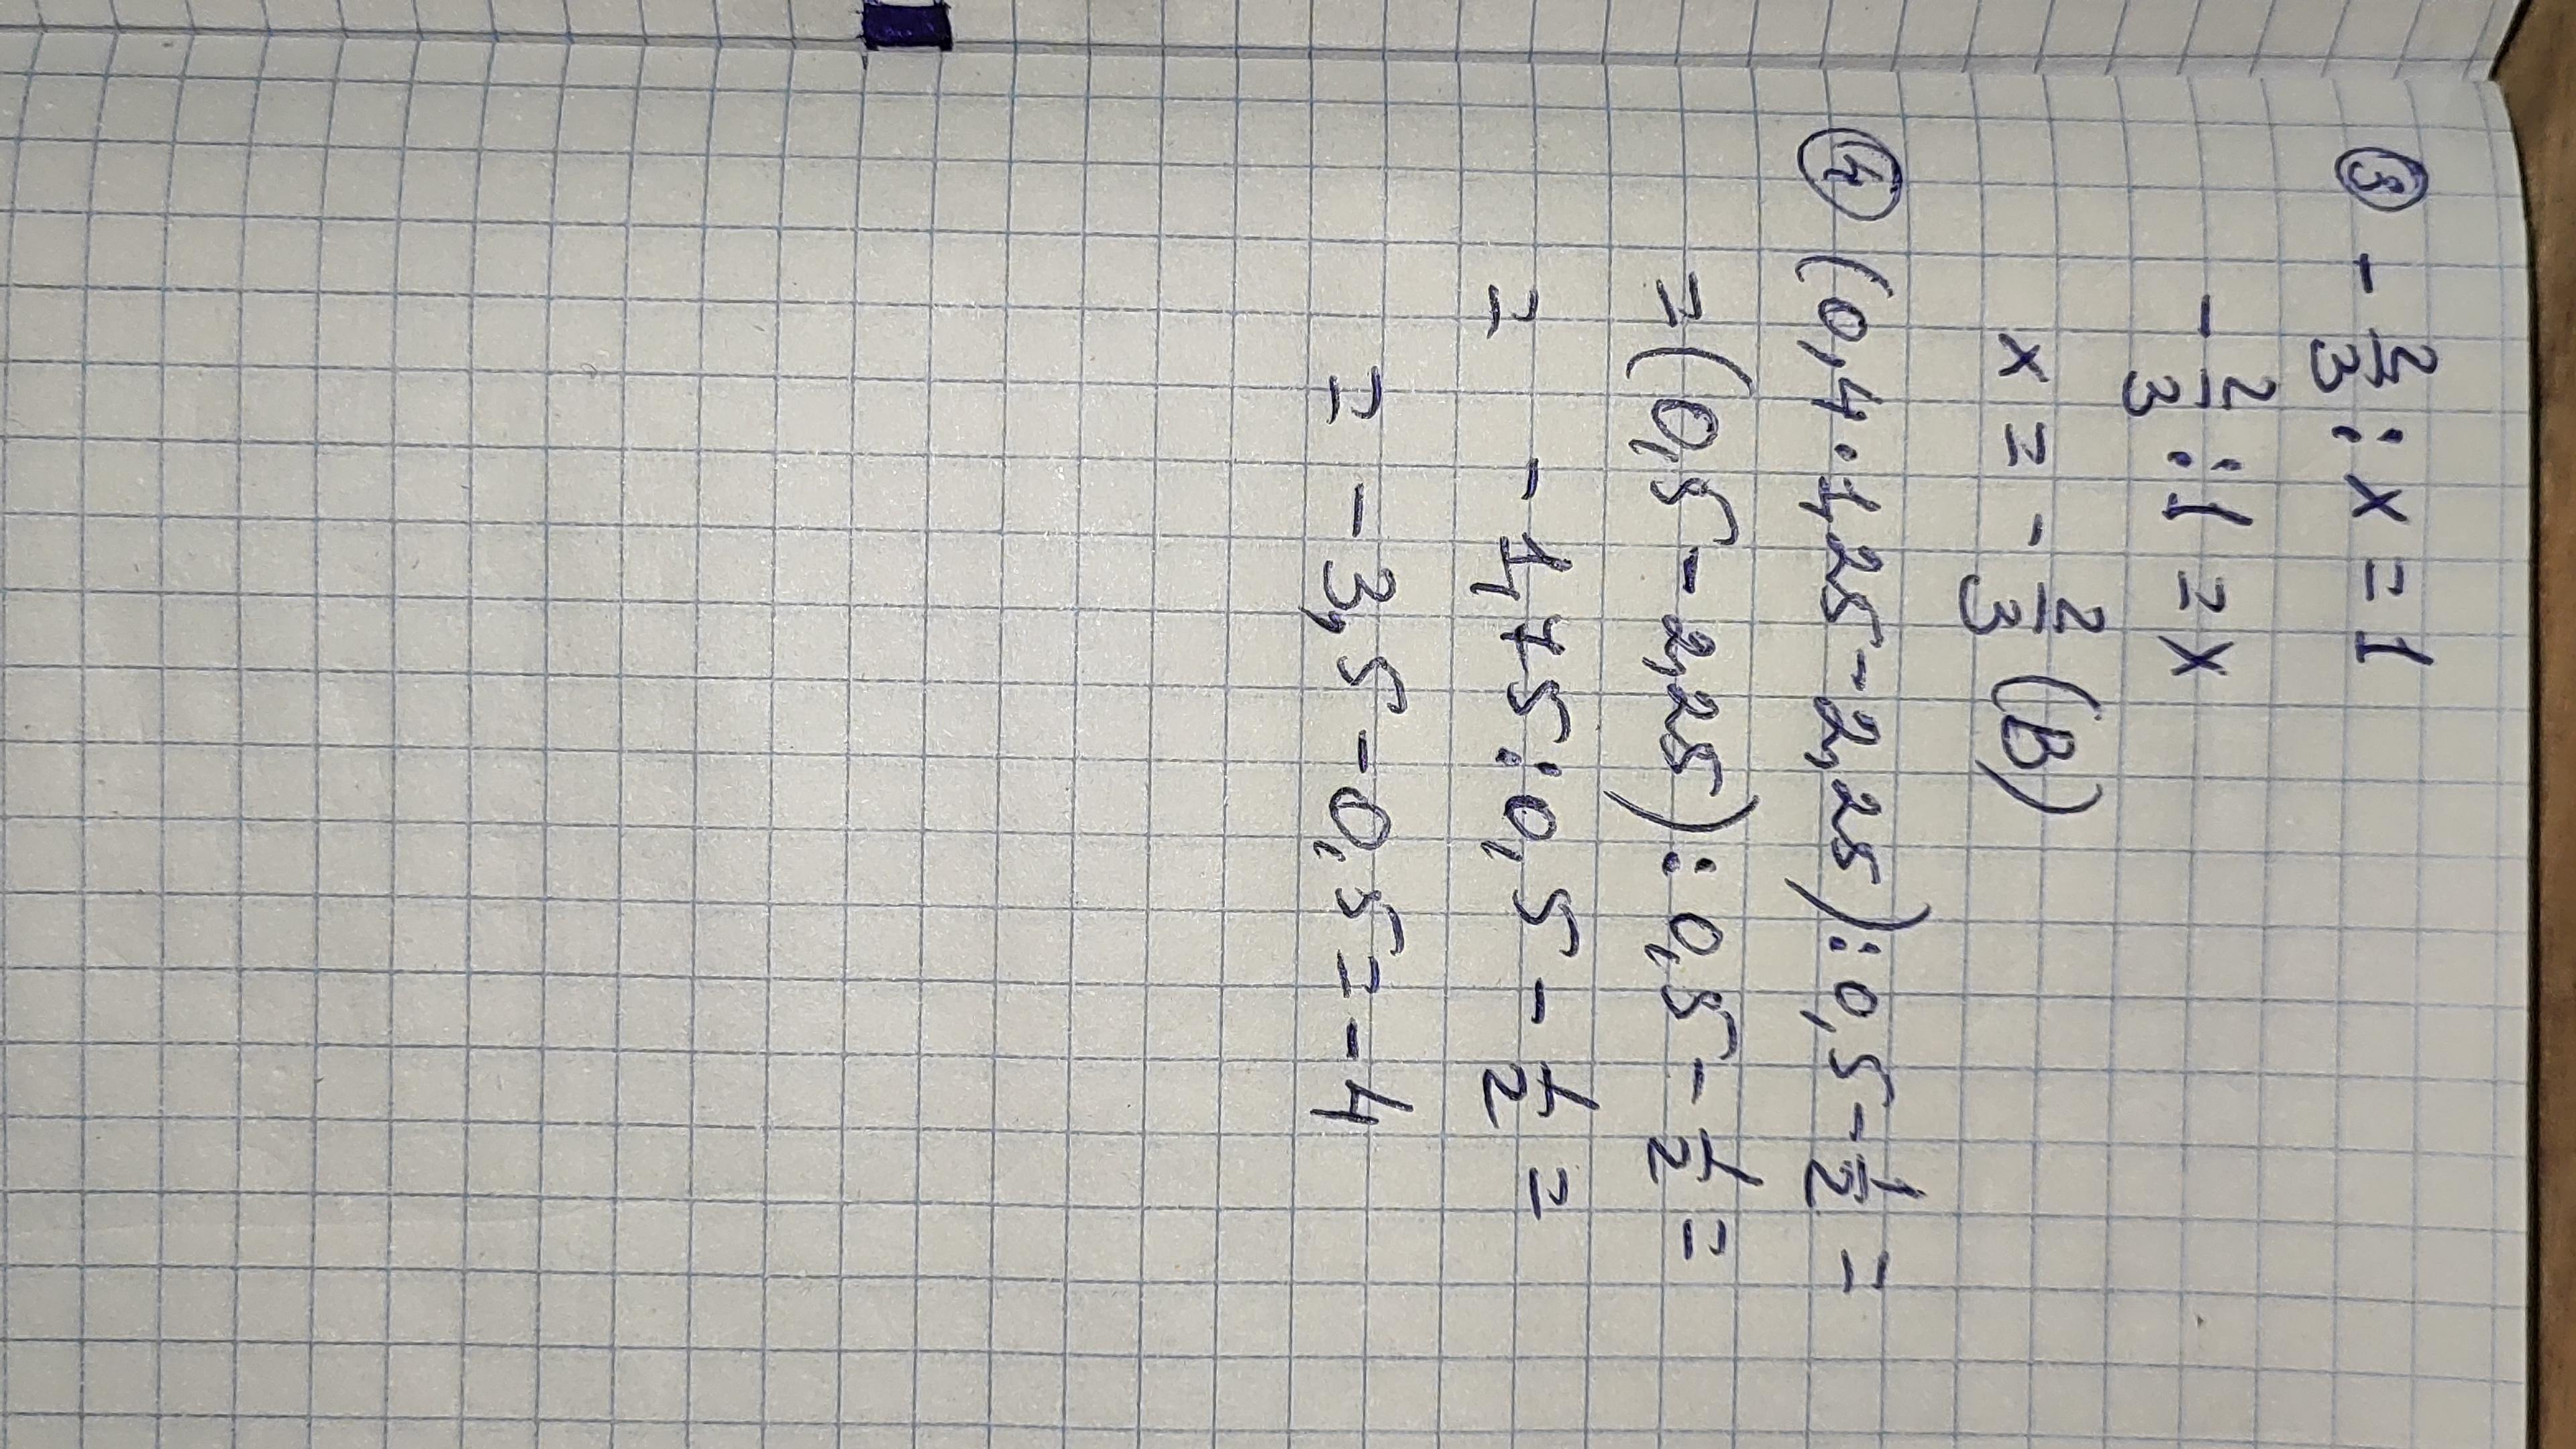 ③ - 2/3 : x = 1
- 2/3 : 1 = x
x = - 2/3 (B)
④ (0,4 · 1,25 - 2,25) : 0,5 - 1/2 =
= (0,5 - 2,25) : 0,5 - 1/2 =
= - 1,75 : 0,5 - 1/2 =
= - 3,5 - 0,5 = - 4